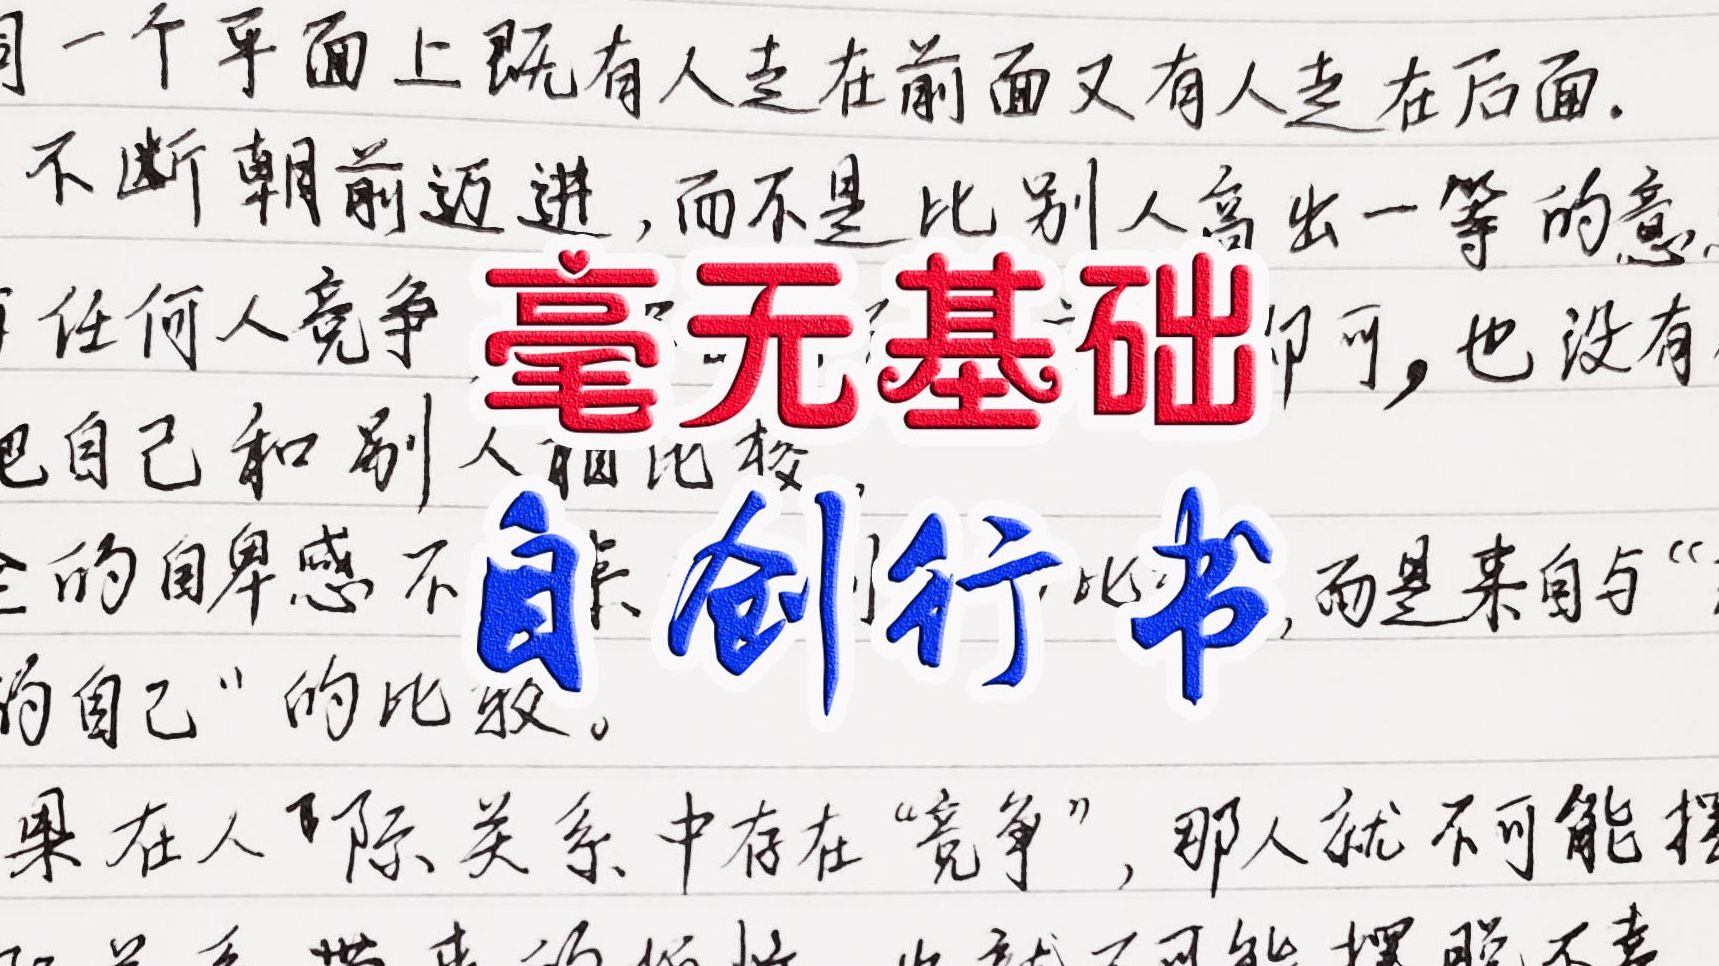 同一个平面上既有人走在前面又有人走在后面.
不断朝前迈进,而不是比别人高出一等的意
任何人竞争
毫无基础
即可,也没有
把自己和别人相比较,
自创行书
全的自卑感不是来
比,而是来自与“
的自己”的比较。
果在人际关系中存在“竞争”,那人就不可能摆
际关系带来的烦恼,也就不可能摆脱不幸